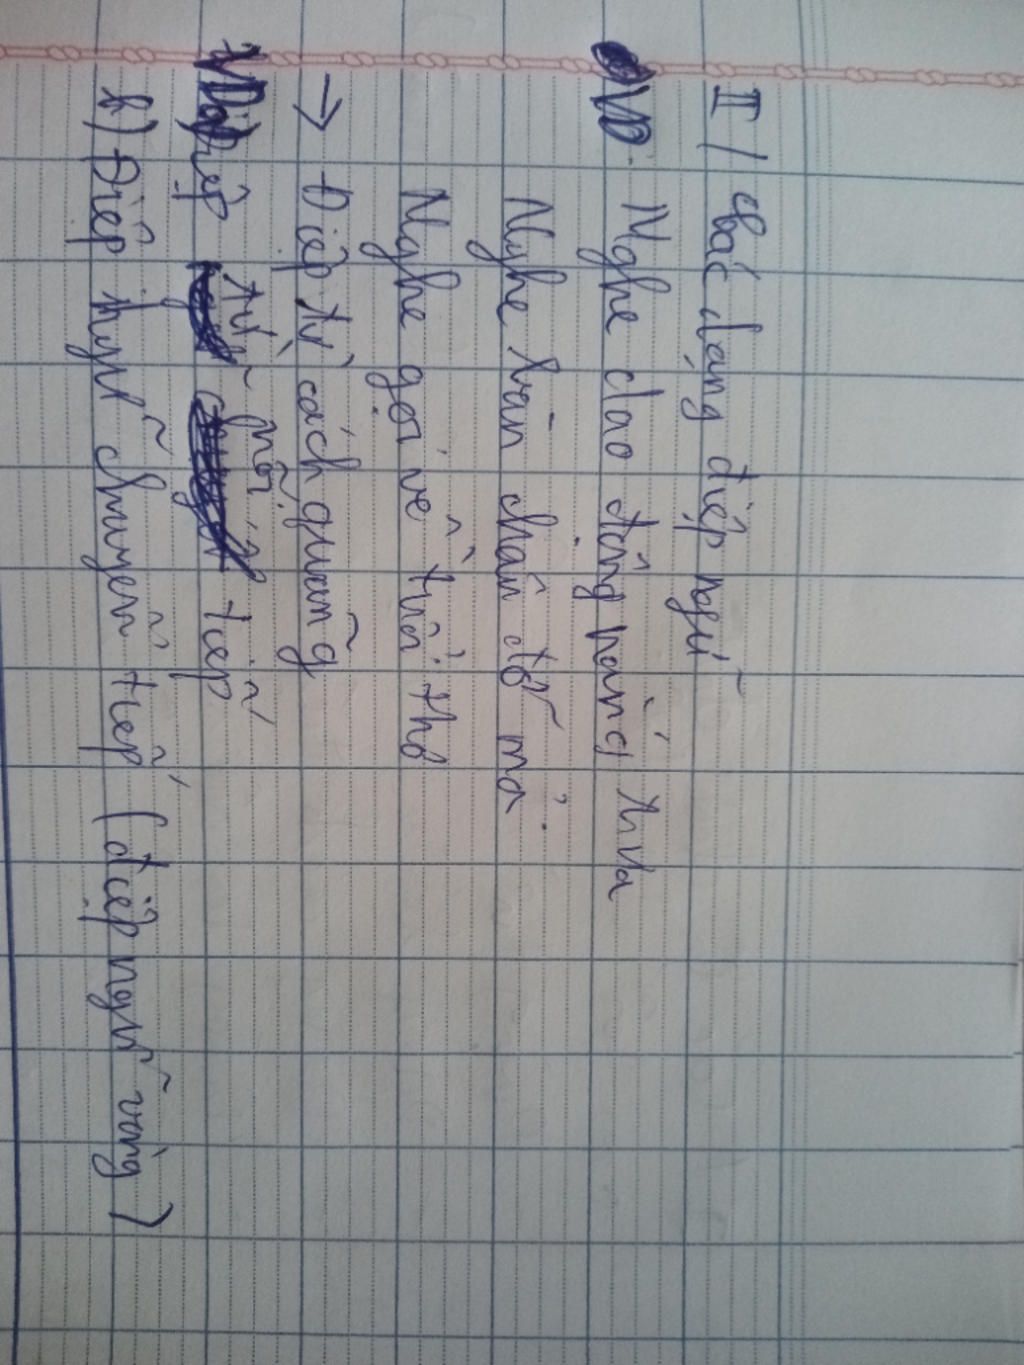 II/ Các dạng điệp ngữ
VD: Nghe dao động nắng trưa
Nghe bàn chân đỡ mỏi.
Nghe gọi về tuổi thơ
→ Điệp từ cách quãng
Điệp từ nối tiếp
b) Điệp ngữ chuyển tiếp (điệp ngữ vòng)